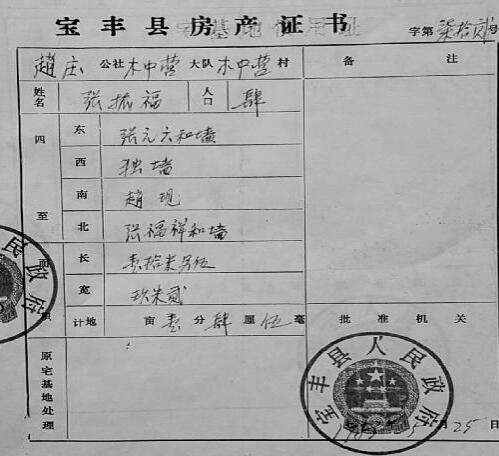 宝丰县房产证书
字第柒拾贰号
赵庄公社木中营大队木中营村
备注
姓名 张振福 人口 肆
四至
东 张元六和墙
西 独墙
南 赵现
北 张福祥和墙
面积
长 壹拾米另伍
宽 玖米贰
计地 亩壹分肆厘伍毫
批准机关
原宅基地处理
宝丰县人民政府
月25日
民政府